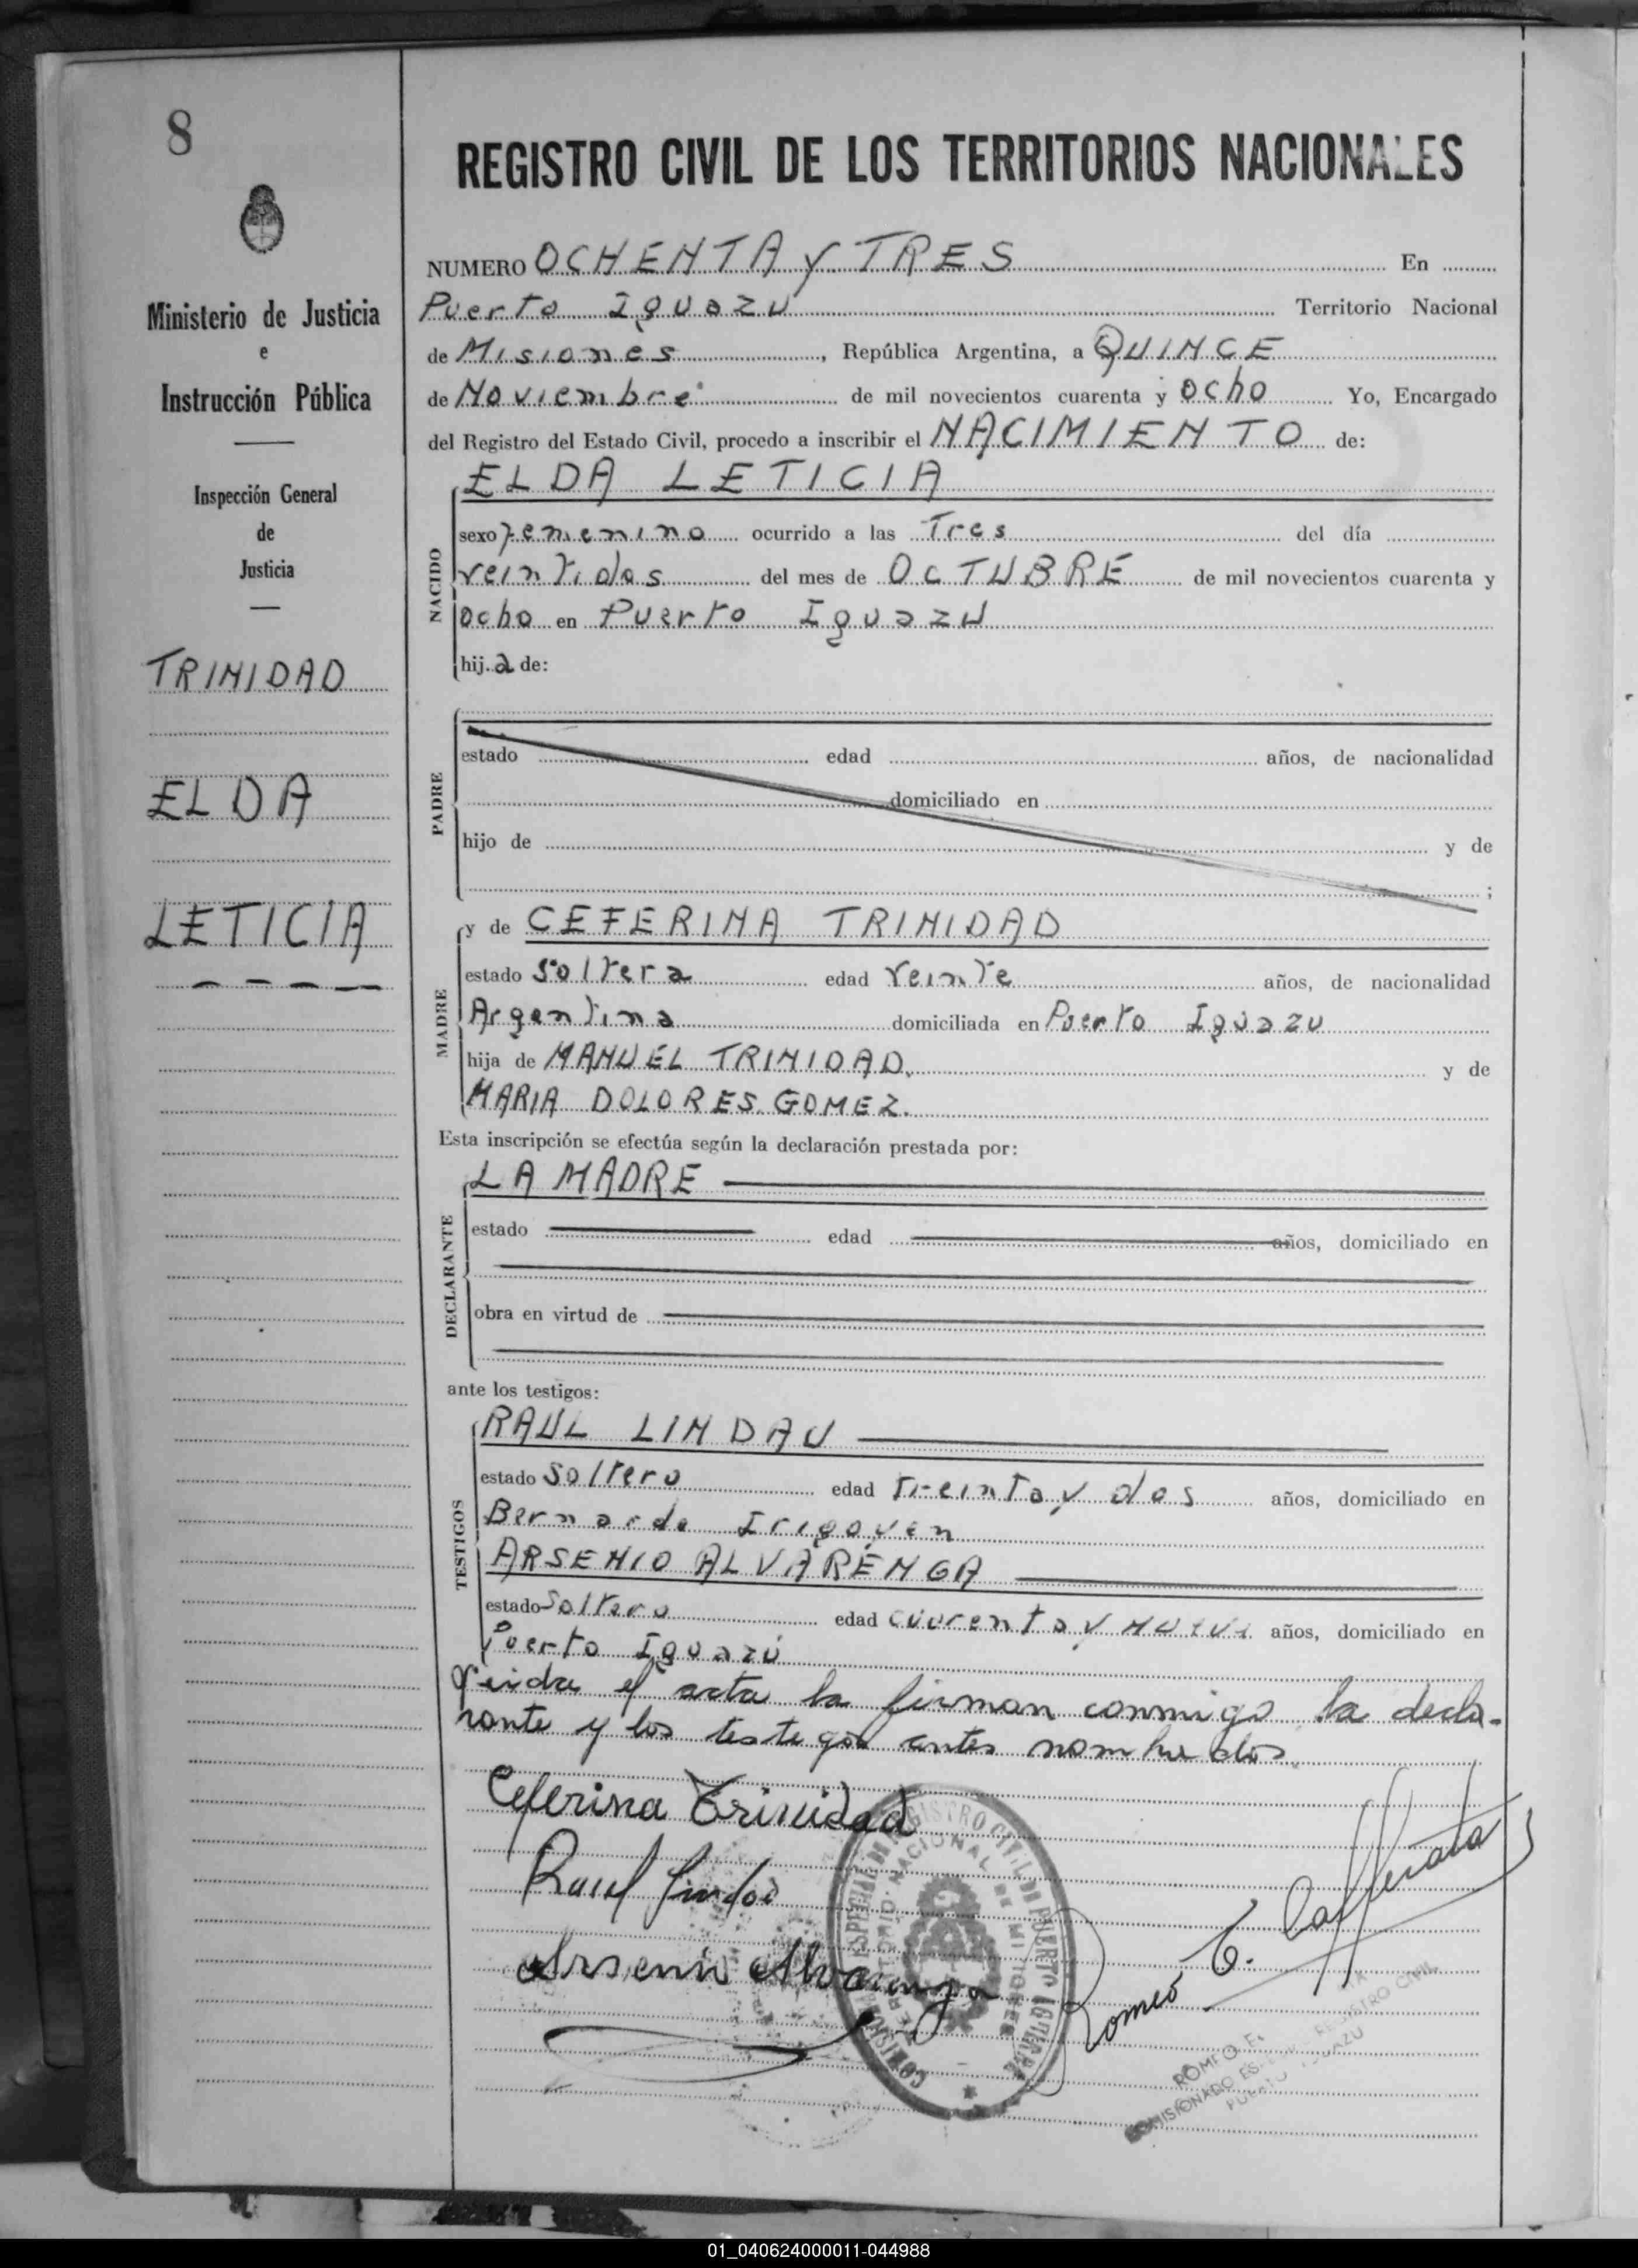 8
Ministerio de Justicia
e
Instrucción Pública
Inspección General
de
Justicia
TRINIDAD
ELDA
LETICIA
REGISTRO CIVIL DE LOS TERRITORIOS NACIONALES
NUMERO OCHENTA Y TRES En
Puerto Iguazu Territorio Nacional
de Misiones, República Argentina, a QUINCE
de Noviembre de mil novecientos cuarenta y ocho Yo, Encargado
del Registro del Estado Civil, procedo a inscribir el NACIMIENTO de:
NACIDO
ELDA LETICIA
sexo femenino ocurrido a las Tres del día
veintidos del mes de OCTUBRE de mil novecientos cuarenta y
ocho en Puerto Iguazu
hija de:
PADRE
estado edad años, de nacionalidad
domiciliado en
hijo de y de
;
MADRE
y de CEFERINA TRINIDAD
estado soltera edad veinte años, de nacionalidad
Argentina domiciliada en Puerto Iguazu
hija de MANUEL TRINIDAD. y de
MARIA DOLORES GOMEZ.
Esta inscripción se efectúa según la declaración prestada por:
DECLARANTE
LA MADRE
estado edad años, domiciliado en
obra en virtud de
ante los testigos:
TESTIGOS
RAUL LINDAU
estado Soltero edad treinta y dos años, domiciliado en
Bernardo Irigoyen
ARSENIO ALVARENGA
estado Soltero edad cuarenta y años, domiciliado en
Puerto Iguazú
el acta la firman conmigo la decla-
rante y los testigos antes nombrados
Ceferina Trinidad
Raul
Arsenio Alvarenga
Romeo E. Cafferata
REGISTRO CIVIL DE PUERTO
NACIONAL DE MISIONES
ROMEO E.
COMISIONADO REGISTRO CIVIL
01_040624000011-044988